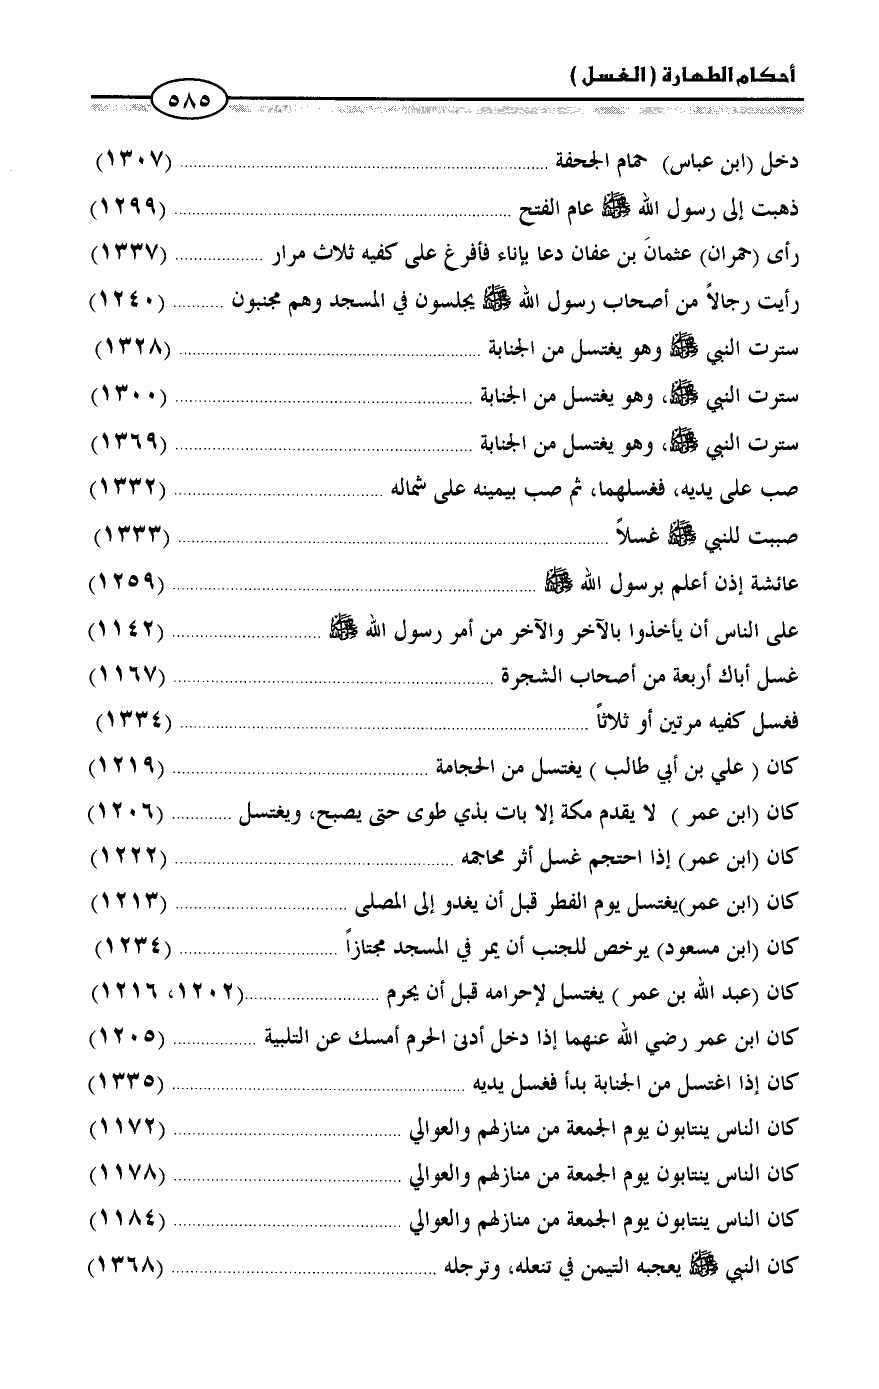 أحكام الطهارة (الغسل)
٥٨٥
دخل (ابن عباس) حمام الجحفة ........ (١٣٠٧)
ذهبت إلى رسول الله ﷺ عام الفتح ........ (١٢٩٩)
رأى (حمران) عثمانَ بن عفان دعا بإناء فأفرغ على كفيه ثلاث مرار ........ (١٣٣٧)
رأيت رجالاً من أصحاب رسول الله ﷺ يجلسون في المسجد وهم مجنبون ........ (١٢٤٠)
سترت النبي ﷺ وهو يغتسل من الجنابة ........ (١٣٢٨)
سترت النبي ﷺ، وهو يغتسل من الجنابة ........ (١٣٠٠)
سترت النبي ﷺ، وهو يغتسل من الجنابة ........ (١٣٦٩)
صب على يديه، فغسلهما، ثم صب بيمينه على شماله ........ (١٣٣٢)
صببت للنبي ﷺ غسلاً ........ (١٣٣٣)
عائشة إذن أعلم برسول الله ﷺ ........ (١٢٥٩)
على الناس أن يأخذوا بالآخر والآخر من أمر رسول الله ﷺ ........ (١١٤٢)
غسل أباك أربعة من أصحاب الشجرة ........ (١١٦٧)
فغسل كفيه مرتين أو ثلاثاً ........ (١٣٣٤)
كان ( علي بن أبي طالب ) يغتسل من الحجامة ........ (١٢١٩)
كان (ابن عمر ) لا يقدم مكة إلا بات بذي طوى حتى يصبح، ويغتسل ........ (١٢٠٦)
كان (ابن عمر) إذا احتجم غسل أثر محاجمه ........ (١٢٢٢)
كان (ابن عمر)يغتسل يوم الفطر قبل أن يغدو إلى المصلى ........ (١٢١٣)
كان (ابن مسعود) يرخص للجنب أن يمر في المسجد مجتازاً ........ (١٢٣٤)
كان (عبد الله بن عمر ) يغتسل لإحرامه قبل أن يحرم ........(١٢٠٢، ١٢١٦)
كان ابن عمر رضي الله عنهما إذا دخل أدنى الحرم أمسك عن التلبية ........ (١٢٠٥)
كان إذا اغتسل من الجنابة بدأ فغسل يديه ........ (١٣٣٥)
كان الناس ينتابون يوم الجمعة من منازلهم والعوالي ........ (١١٧٢)
كان الناس ينتابون يوم الجمعة من منازلهم والعوالي ........ (١١٧٨)
كان الناس ينتابون يوم الجمعة من منازلهم والعوالي ........ (١١٨٤)
كان النبي ﷺ يعجبه التيمن في تنعله، وترجله ........ (١٣٦٨)